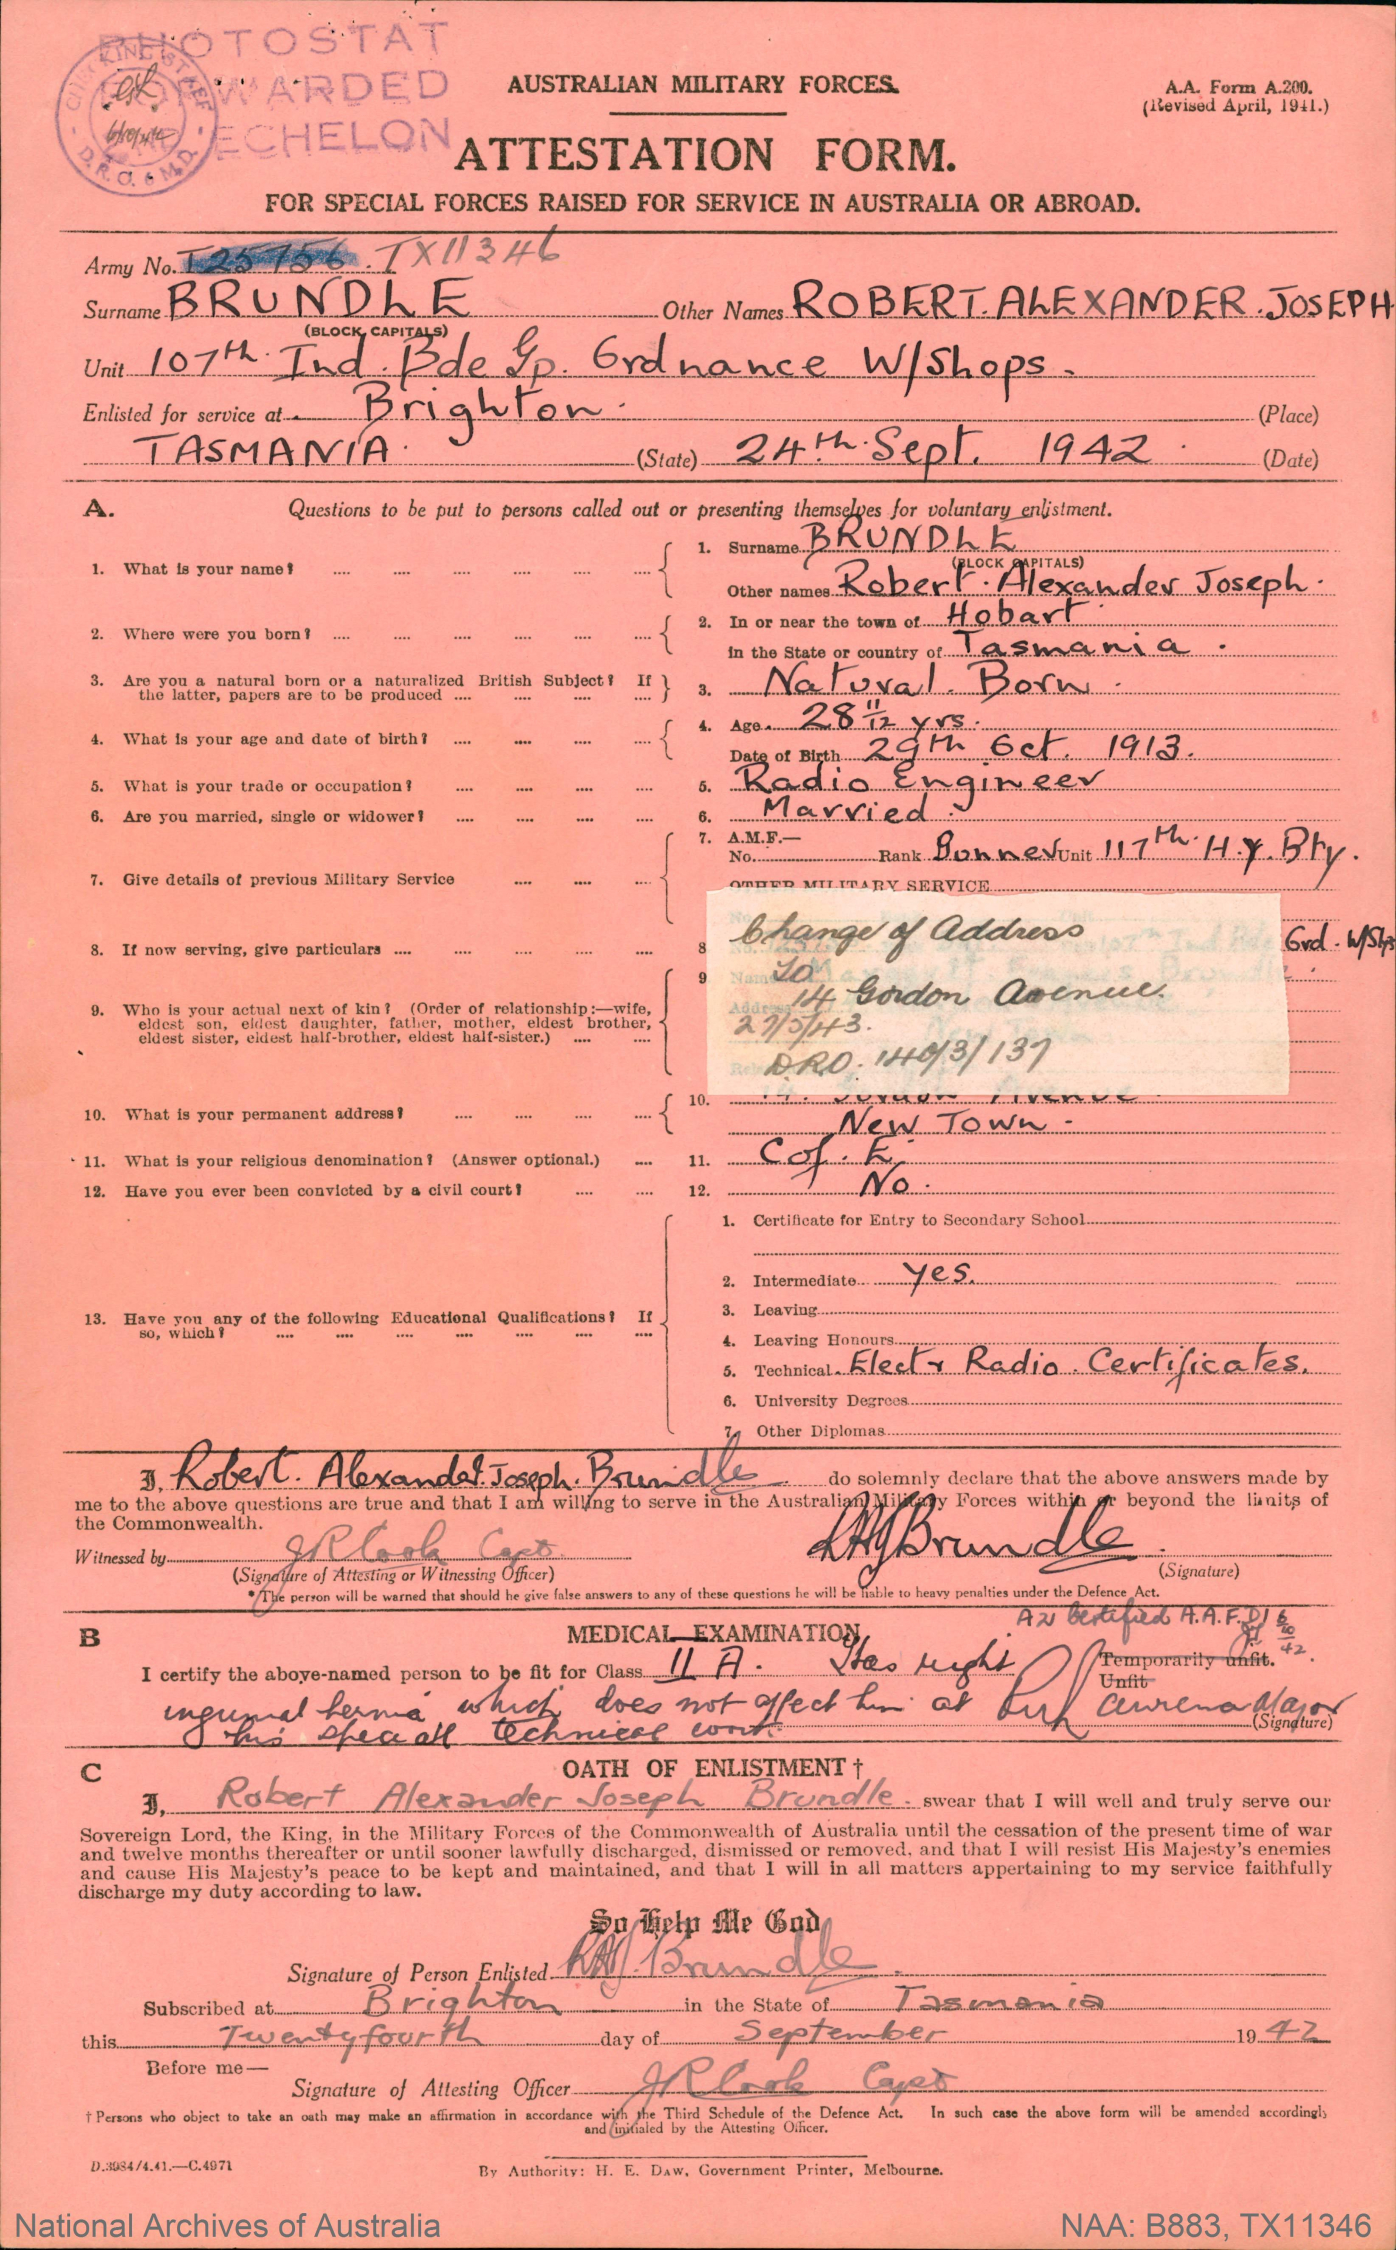 PHOTOSTAT
FORWARDED
ECHELON
D.R.O. 6 M.D.
AUSTRALIAN MILITARY FORCES.
A.A. Form A.200.
(Revised April, 1941.)
ATTESTATION FORM.
FOR SPECIAL FORCES RAISED FOR SERVICE IN AUSTRALIA OR ABROAD.
Army No. T25756 TX11346
Surname BRUNDLE Other Names ROBERT. ALEXANDER. JOSEPH
(BLOCK CAPITALS)
Unit 107th Ind. Bde Gp. Ordnance W/Shops.
Enlisted for service at Brighton. (Place)
TASMANIA. (State) 24th Sept. 1942. (Date)
A. Questions to be put to persons called out or presenting themselves for voluntary enlistment.
1. What is your name? 1. Surname BRUNDLE
(BLOCK CAPITALS)
Other names Robert. Alexander Joseph.
2. Where were you born? 2. In or near the town of Hobart
in the State or country of Tasmania.
3. Are you a natural born or a naturalized British Subject? If
the latter, papers are to be produced 3. Natural. Born.
4. What is your age and date of birth? 4. Age 28 11/12 yrs.
Date of Birth 29th Oct. 1913.
5. What is your trade or occupation? 5. Radio Engineer
6. Are you married, single or widower? 6. Married.
7. Give details of previous Military Service 7. A.M.F.—
No. Rank Gunner Unit 117th H.y. Bty.
OTHER MILITARY SERVICE
8. If now serving, give particulars 8 Ord. W/Shps
9. Who is your actual next of kin? (Order of relationship:—wife,
eldest son, eldest daughter, father, mother, eldest brother,
eldest sister, eldest half-brother, eldest half-sister.)
9
Change of Address
To
14 Gordon Avenue.
27/5/43.
DRO. 140/3/137
10. What is your permanent address? 10. 14. Gordon Avenue.
New Town.
11. What is your religious denomination? (Answer optional.) 11. C of. E.
12. Have you ever been convicted by a civil court? 12. No.
13. Have you any of the following Educational Qualifications? If
so, which?
1. Certificate for Entry to Secondary School
2. Intermediate yes.
3. Leaving
4. Leaving Honours
5. Technical Elect & Radio. Certificates.
6. University Degrees
7. Other Diplomas
I, Robert. Alexander. Joseph. Brundle do solemnly declare that the above answers made by
me to the above questions are true and that I am willing to serve in the Australian Military Forces within or beyond the limits of
the Commonwealth.
Witnessed by J R Cook Capt. RAJ Brundle.
(Signature of Attesting or Witnessing Officer) (Signature)
*The person will be warned that should he give false answers to any of these questions he will be liable to heavy penalties under the Defence Act.
B MEDICAL EXAMINATION
Certified A.A.F. D1 6/10/42.
I certify the above-named person to be fit for Class II A. Has right
Temporarily unfit.
Unfit
inguinal hernia which does not affect him at Major
his special technical work.
(Signature)
C OATH OF ENLISTMENT †
I, Robert Alexander Joseph Brundle. swear that I will well and truly serve our
Sovereign Lord, the King, in the Military Forces of the Commonwealth of Australia until the cessation of the present time of war
and twelve months thereafter or until sooner lawfully discharged, dismissed or removed, and that I will resist His Majesty's enemies
and cause His Majesty's peace to be kept and maintained, and that I will in all matters appertaining to my service faithfully
discharge my duty according to law.
So Help Me God
Signature of Person Enlisted RAJ. Brundle.
Subscribed at Brighton in the State of Tasmania
this Twentyfourth day of September 1942
Before me—
Signature of Attesting Officer J R Cook Capt
† Persons who object to take an oath may make an affirmation in accordance with the Third Schedule of the Defence Act. In such case the above form will be amended accordingly
and initialed by the Attesting Officer.
D.3984/4.41.—C.4971
By Authority: H. E. Daw, Government Printer, Melbourne.
National Archives of Australia NAA: B883, TX11346